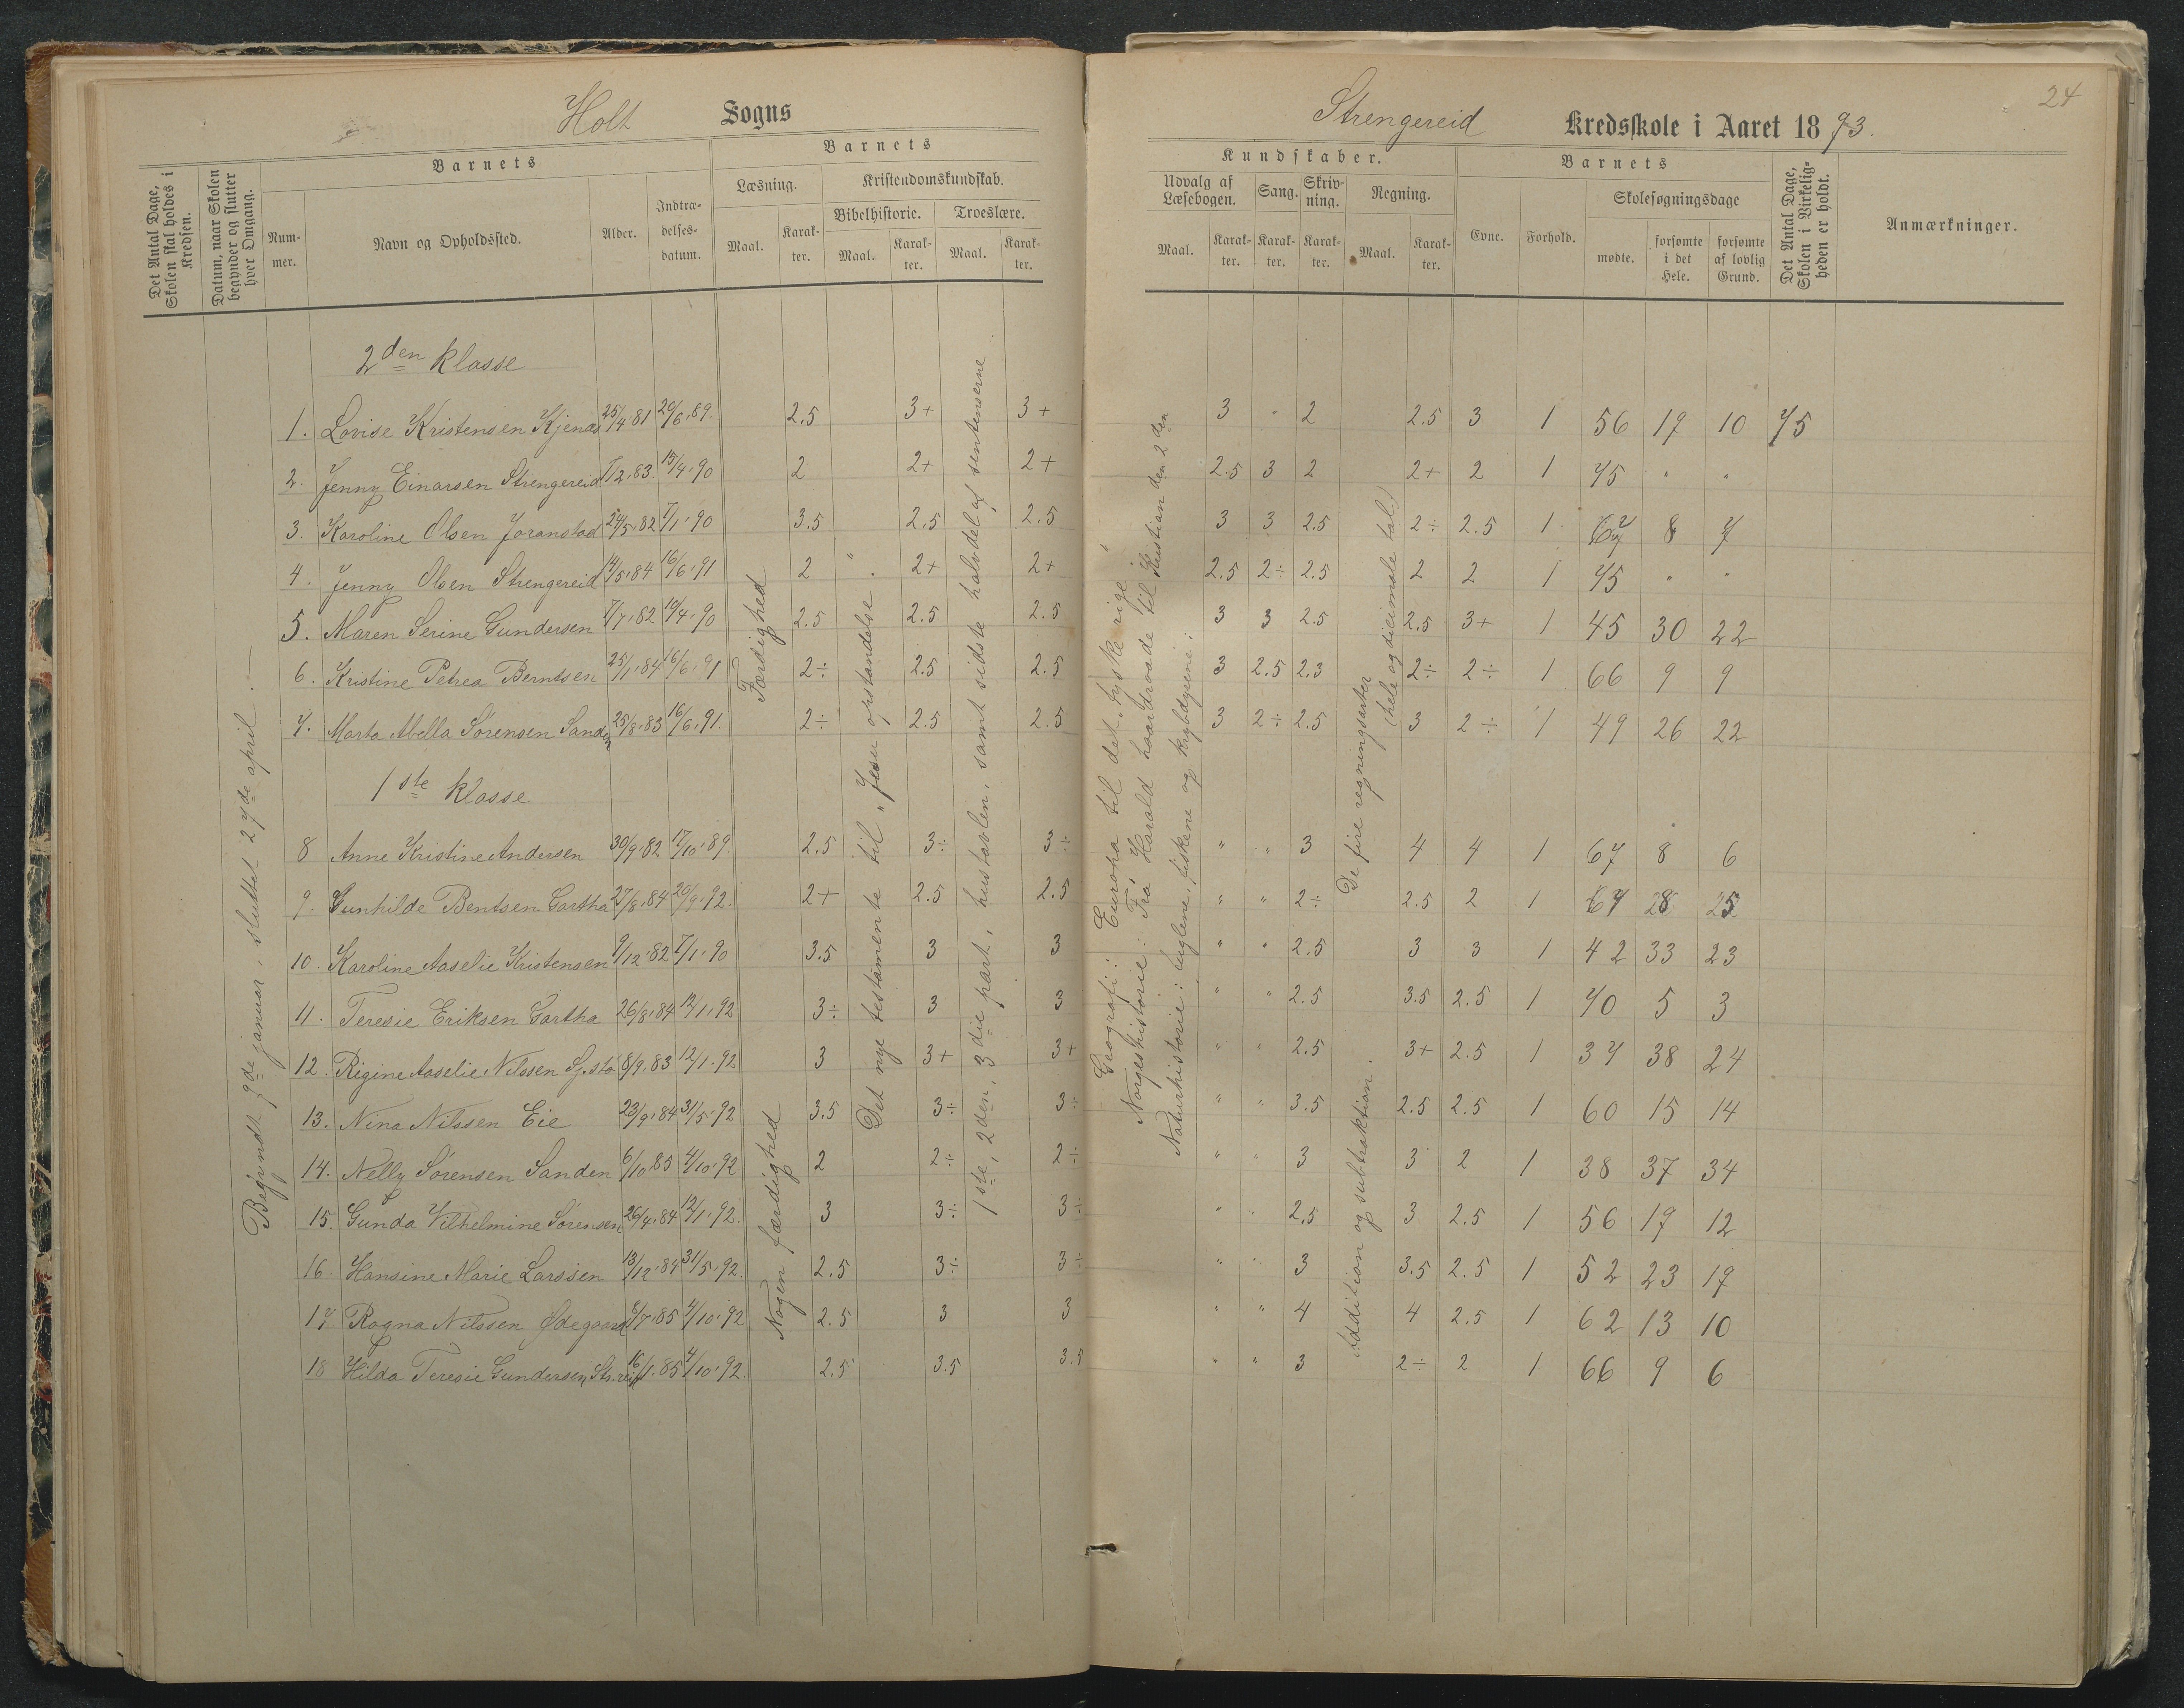 Holt Sogns
Strengereid Kredsskole i Aaret 1893.
24
Det Antal Dage, Skolen skal holdes i Kredsen.
Datum, naar Skolen begynder og slutter hver Omgang.
Barnets
Nummer.
Navn og Opholdssted.
Alder.
Indtrædelsesdatum.
Barnets
Læsning.
Maal.
Karakter.
Kristendomskundskab.
Bibelhistorie.
Maal.
Karakter.
Troeslære.
Maal.
Karakter.
Kundskaber.
Udvalg af Læsebogen.
Maal.
Karakter.
Sang.
Karakter.
Skrivning.
Karakter.
Regning.
Maal.
Karakter.
Barnets
Evne.
Forhold.
Skolesøgningsdage
mødte.
forsømte i det Hele.
forsømte af lovlig Grund.
Det Antal Dage, Skolen i Virkeligheden er holdt.
Anmærkninger.
Begyndt 9de januar, sluttet 27de april.
2den klasse
1. Lovise Kristensen Kjenas 25/4.81 20/6.89. 2.5 3+ 3+ 3 " 2 2.5 3 1 56 19 10 75
2. Jenny Einarsen Strengereid 1/2.83. 15/4.90 2 2+ 2+ 2.5 3 2 2+ 2 1 75 " "
3. Karoline Olsen Joranstad 24/5.82 7/1.90 3.5 2.5 2.5 3 3 2.5 2÷ 2.5 1 67 8 7
4. Jenny Olsen Strengereid 14/5.84 16/6.91 2 " 2+ 2+ 2.5 2÷ 2.5 2 2 1 75 " "
5. Maren Serine Gundersen 7/7.82 19/4.90 2.5 2.5 2.5 3 3 2.5 2.5 3+ 1 45 30 22
6. Kristine Petrea Berntsen 25/1.84 16/6.91 2÷ 2.5 2.5 3 2.5 2.3 2÷ 2÷ 1 66 9 9
7. Marta Abella Sørensen Sanden 25/8.83 16/6.91. 2÷ 2.5 2.5 3 2÷ 2.5 3 2÷ 1 49 26 22
1ste klasse
8 Anne Kristine Andersen 30/9.82 17/10.89. 2.5 3÷ 3÷ " " 3 4 4 1 67 8 6
9. Gunhilde Bentsen Gartha 27/8.84 20/9.92. 2+ 2.5 2.5 " " 2÷ 2.5 2 1 28 25
10. Karoline Aaselie Kristensen 9/12.82 7/1.90 3.5 3 3 " " 2.5 3 3 1 42 33 23
11. Teresie Eriksen Gartha 26/8.84 12/1.92 3÷ 3 3 " " 2.5 3.5 2.5 1 70 5 3
12. Rigine Aaselie Nilssen Sj.stø 8/9.83 12/1.92 3 3+ 3+ " " 2.5 3+ 2.5 1 37 38 24
13. Nina Nilssen Eie 23/9.84 31/5.92 3.5 3÷ 3÷ " " 3.5 2.5 2.5 1 60 15 14
14. Nelly Sørensen Sanden 6/10.85 4/10.92 2 2÷ 2÷ " " 3 3 2 1 38 37 34
15. Gunda Vilhelmine Sørensen 26/4.84 12/1.92. 3 3÷ 3÷ " " 2.5 3 2.5 1 56 19 12
16 Hansine Marie Larssen 13/12.84 31/5.92. 2.5 3÷ 3÷ " " 3 3.5 2.5 1 52 23 19
17 Ragna Nilssen Ødegaard 8/7.85 4/10.92 2.5 3 3 " " 4 4 2.5 1 62 13 10
18 Hilda Teresie Gundersen, Str.reid 16/1.85 4/10.92. 2.5 3.5 3.5 " " 3 2÷ 2 1 66 9 6
Færdighed
Nogen færdighed
Det nye testamente til "Jesu opstandelse".
1ste, 2den, 3die part, hustavlen, samt sidste halvdel af sentenserne
Geografi: Europa til det tyske rige;
Norgeshistorie: Fra Harald haardraade til Kristian den 2den
Naturhistorie: fuglene, fiskene og krybdyrene;
De fire regningsarter
(hele og decimale tal)
Addition og subtraktion.